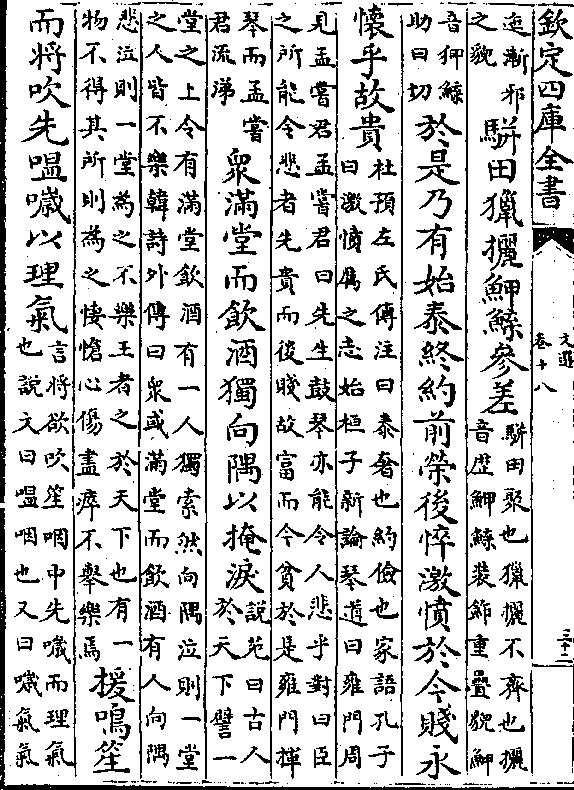 欽定四庫全書
文選
卷十八
三十二
迤漸邪
之貌
駢田獵攦魻鰈參差
駢田聚也獵攦不齊也攦
音歴魻鰈裝飾重疊貌魻
音狎鰈
助曰切
於是乃有始泰終約前榮後悴激憤於今賤永
懷乎故貴
杜預左氏傳注曰泰奢也約儉也家語孔子
曰激憤厲之志始桓子新論琴道曰雍門周
見孟嘗君孟嘗君曰先生鼓琴亦能令人悲乎對曰臣
之所能令悲者先貴而後賤故富而今貧於是雍門揮
琴而孟嘗
君流涕
衆滿堂而飲酒獨向隅以掩淚
説苑曰古人
於天下譬一
堂之上今有滿堂飲酒有一人獨索然向隅泣則一堂
之人皆不樂韓詩外傳曰衆或滿堂而飲酒有人向隅
悲泣則一堂為之不樂王者之於天下也有一
物不得其所則為之悽愴心傷盡瘁不舉樂焉
援鳴笙
而將吹先嗢噦以理氣
言將欲吹笙咽中先噦而理氣
也説文曰嗢咽也又曰噦氣氣